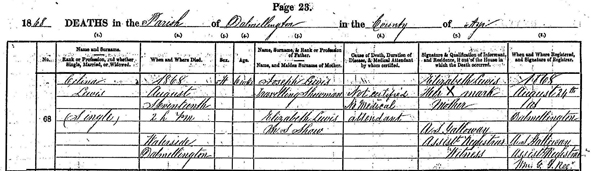 Page 23.
1868 DEATHS in the Parish of Dalmellington in the County of Ayr
(1.) (2.) (3.) (4.) (5.) (6.) (7.) (8.)
No.
Name and Surname.
Rank or Profession, and whether
Single, Married, or Widowed.
When and Where Died.
Sex.
Age.
Name, Surname, & Rank or Profession
of Father.
Name, and Maiden Surname of Mother.
Cause of Death, Duration of
Disease, & Medical Attendant
by whom certified.
Signature & Qualification of Informant,
and Residence, if out of the House in
which the Death occurred.
When and Where Registered,
and Signature of Registrar.
68
Lewis
(Single)
1868
August
Seventeenth
2 h. P.m.
Waterside
Dalmellington
Joseph Lewis
Travelling Showman
Elizabeth Lewis
M. S. Shaw
Not certified
No Medical
attendant
Elizabeth Lewis
Her X mark
Mother
A. S. Galloway
Assist. Registrar
Witness
1868
August 24th
At
Dalmellington
A. S. Galloway
Assist. Registrar